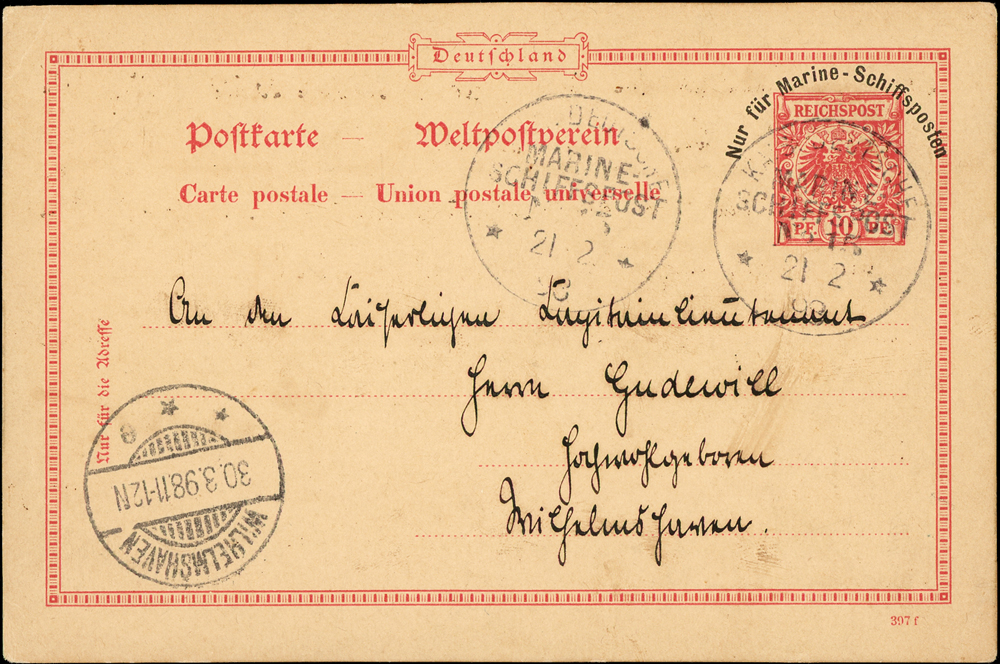 Deutschland
Nur für Marine-Schiffsposten
REICHSPOST
10 PF. PF.
Postkarte — Weltpostverein
Carte postale — Union postale universelle
MARINE-
SCHIFFSPOST
★ 21 2 ★
SCHIFFSPOST
★ 21 2 ★
98
An den Kaiserlichen Kapitainlieutenant
Herrn Gudewill
Hochwohlgeboren
Wilhelmshaven.
Nur für die Adresse
30.3.98.11-12N
WILHELMSHAVEN
397 f